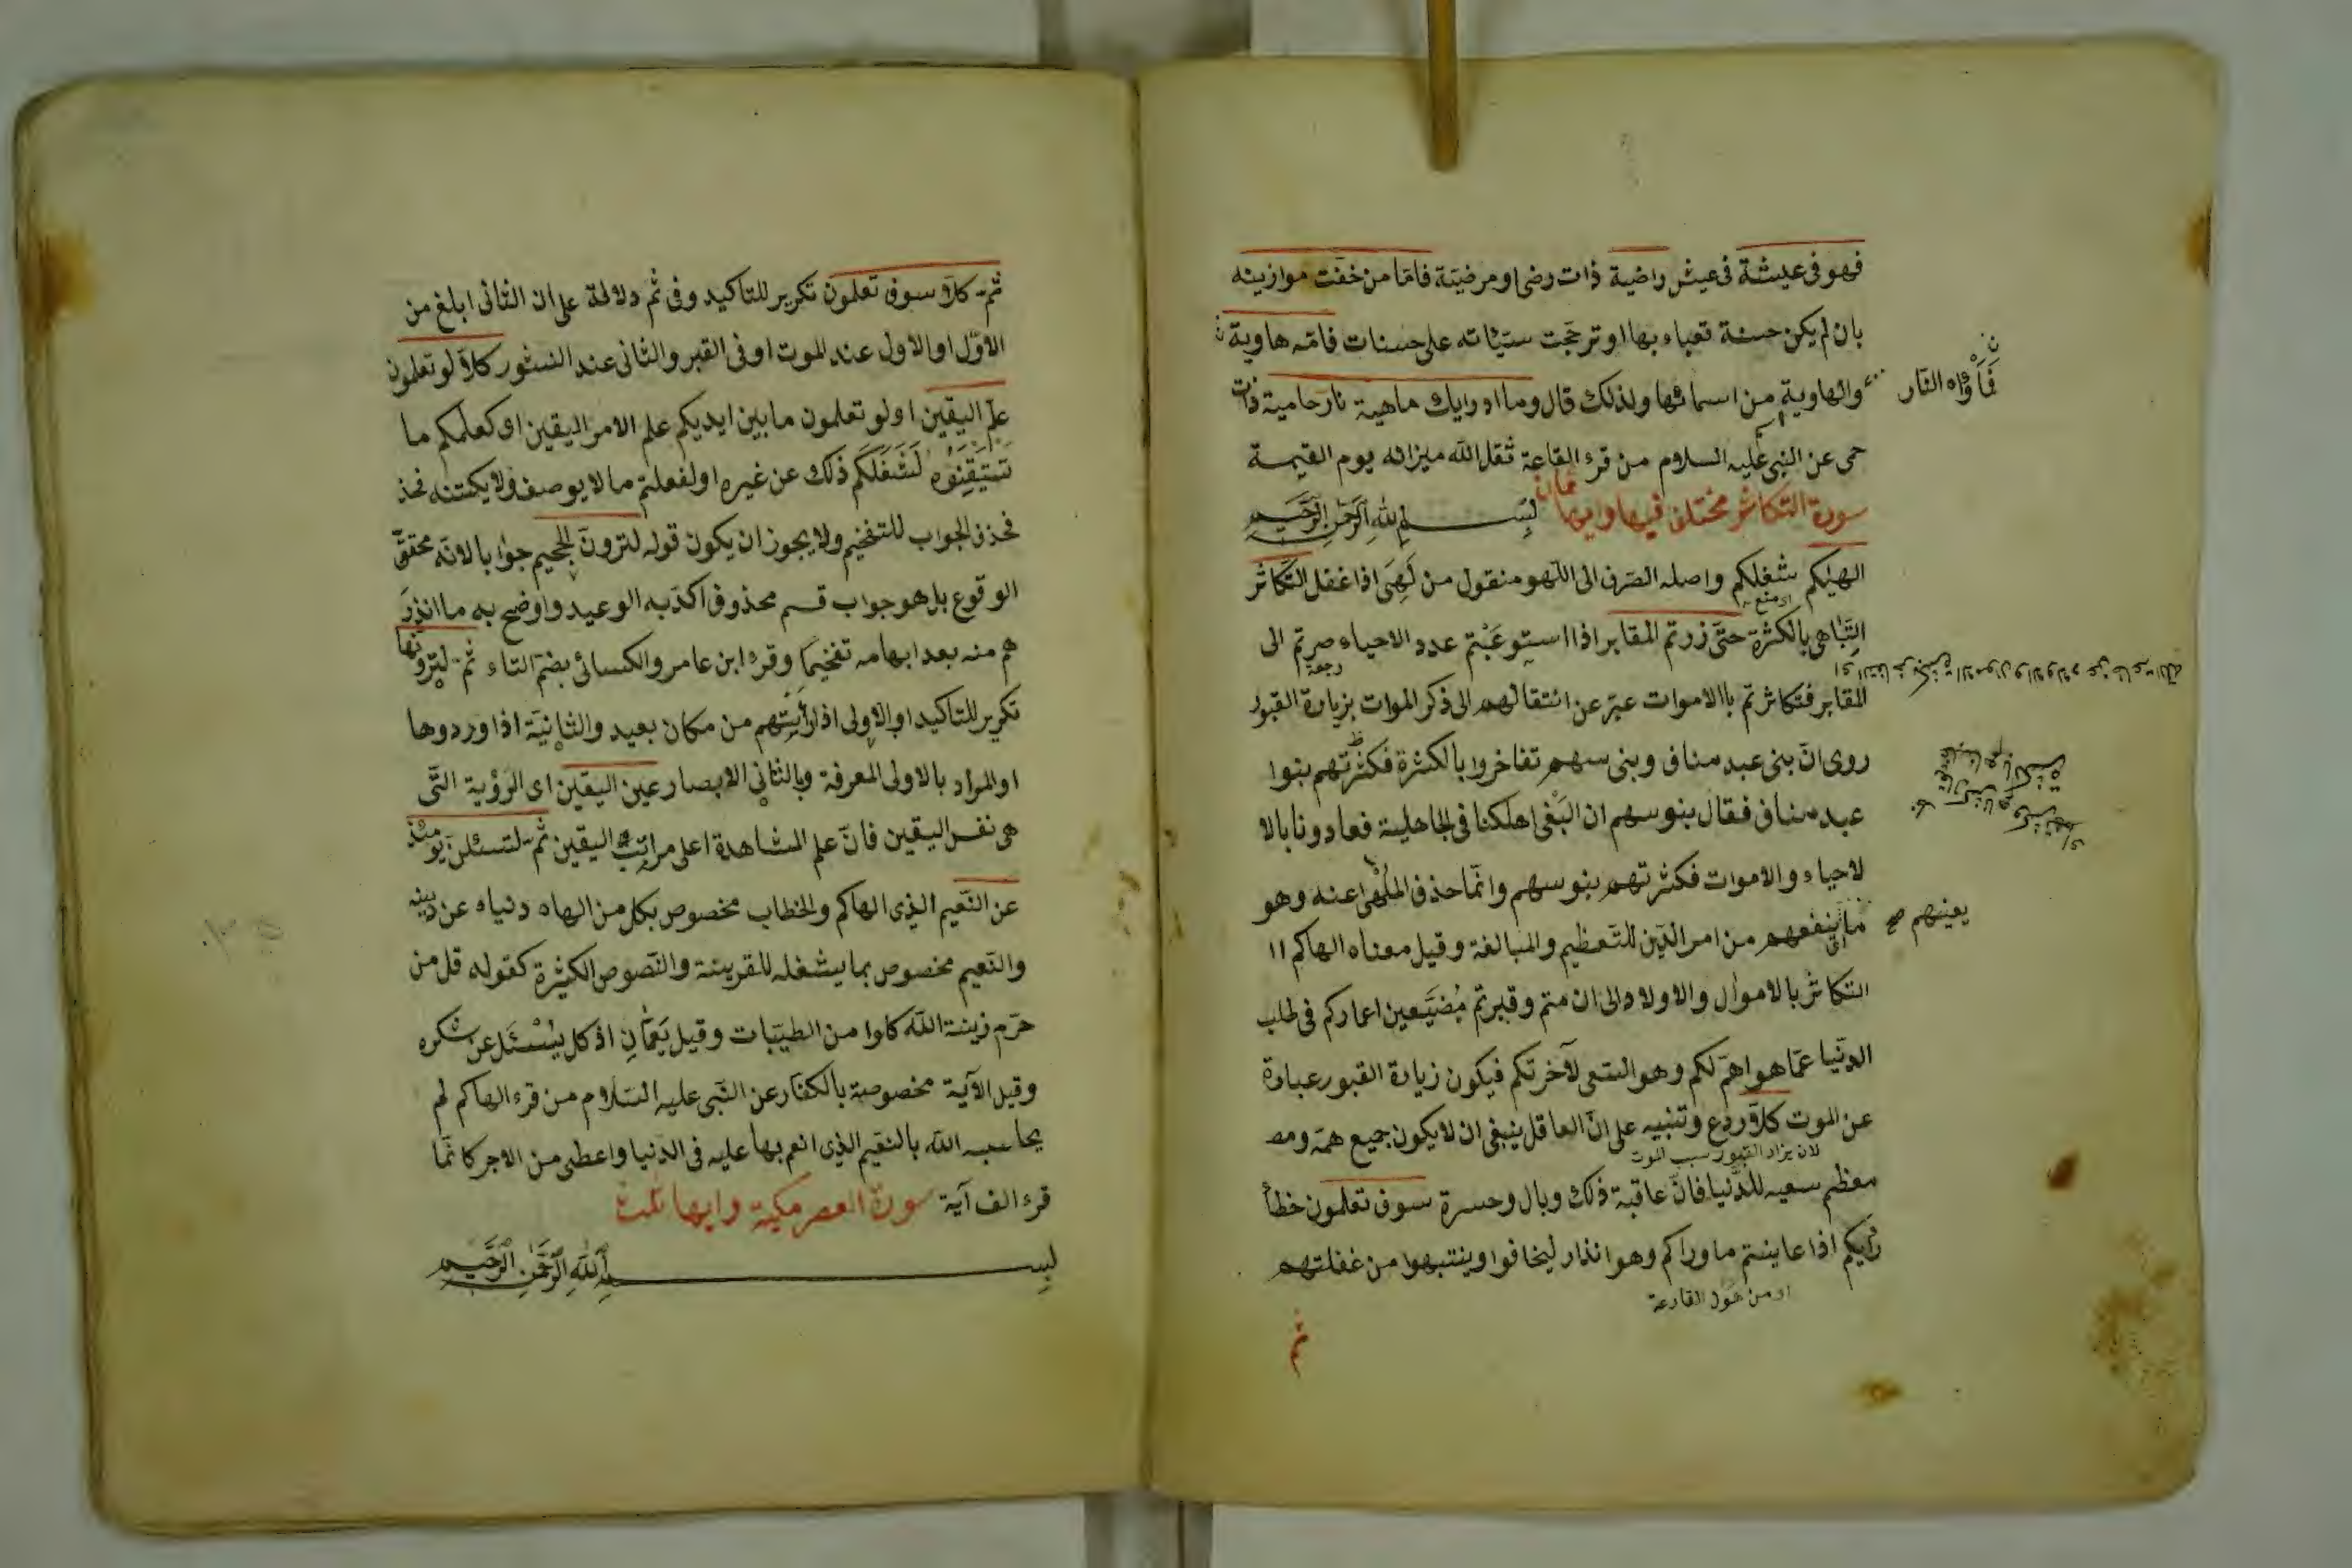 فهو فى عيشة فى عيش راضية ذات رضى او مرضيّة فامّا من خفّت موازينه
بان لم يكن حسنة تعباء بها او ترجّحت سيّئاته على حسنات فامّه هاوية
فَمَأْوٰاه النّار
والهاوية من اسمائها ولذلك قال وما ادرايك ماهية نار حامية ذات
حمى عن النبى عليه السلام من قرء القاعة ثقل الله ميزانه يوم القيمة
سورة التكاثر مختلف فيها وايها ثمان بسم الله الرحمن الرحيم
الهيٰكم شغلكم واصله الصّرف الى اللّهو منقول من لَهِىَ اذا غفل التّكاثر
اى منع
التّباهى بالكثرة حتّى زرتم المقابر اذا استوعَبْتم عدد الاحياء صرتم الى
المقابر فتكاثرتم باالاموات عبّر عن انتقالهم الى ذكر الموات بزيارة القبور
روى انّ بنى عبد مناف وبنى سهم تفاخروا بالكثرة فكثرتهم بنوا
عبد مناف فقال بنو سهم ان البَغْى اهلكنا فى الجاهلية فعادونا بالا
لاحياء والاموات فكثرتهم بنو سهم وانّما حذف المُلْهٰى عنه وهو
يعينهم صح
ما ينفعهم من امر الدّين للتّعظيم والمبالغة وقيل معناه الهاكم اا
التكاثر بالاموال والاولاد الى ان متم وقبرتم مُضَيّعين اعماركم فى طلب
الدنّيا عمّا هو اهمّ لكم وهو السّعى لآخرتكم فيكون زيارة القبور عبارة
عن الموت كلاّ ردع وتنبيه على انّ العاقل ينبغى ان لا يكون جميع همّه ومعـ
لان يزاد القبور سبب الموت
معظم سعيه للدّنيا فانّ عاقبة ذلك وبال وحسرة سوف تعلمون خطأ
رأيكم اذا عاينتم ما وراكم وهو انذار ليخافوا وينتبهوا من غفلتهم
او من هول القارعة
ثم
ثمّ كلاّ سوف تعلمون تكرير للتاكيد وفى ثمّ دلالة على ان الثانى ابلغ من
الاوّل او الاول عند الموت او فى القبر والثانى عند النشور كلاّ لو تعلمون
علم اليقين اى لو تعلمون ما بين ايديكم علم الامر اليقين اى كعلمكم ما
تستيقنوه لَشَغَلَكم ذلك عن غيره او لفعلتم ما لا يوصف ولا يكتنه فحذ
فحذف الجواب للتفخيم ولا يجوز ان يكون قوله لترونّ الجحيم جوابا لانّه محقّق
الوقوع بل هو جواب قسم محذوف اكدّ به الوعيد واوضح به ما انذرَ
هم منه بعد ابهامه تفخيمًا وقرء ابن عامر والكسائى بضمّ التاء ثمّ لترونّها
تكرير للتاكيد او الاولى اذا رأيتهم من مكان بعيد والثانيّة اذا وردوها
او المراد بالاولى المعرفة وبالثانى الابصار عين اليقين اى الرّؤية التّى
هى نفس اليقين فانّ علم المشاهدة اعلى مراتب اليقين ثمّ لتسئلنّ يومئذ
عن النّعيم الّذى الهاكم والخطاب مخصوص بكل من الهاه دنياه عن دينه
والنّعيم مخصوص بما يشغله للقرينة والنّصوص الكثيرة كقوله قل من
حرّم زينة اللّه كلوا من الطيّبات وقيل يَعُمّانِ اذ كل يُسْئَل عن شكره
وقيل الآية مخصوصة بالكفّار عن النّبى عليه السّلام من قرء الهاكم لم
يحاسبه اللّه بالنّعيم الّذى انعم بها عليه فى الدّنيا واعطى من الاجر كانّما
قرء الف آية سورة العصر مكية وايها ثلث
بسم الله الرحمن الرحيم